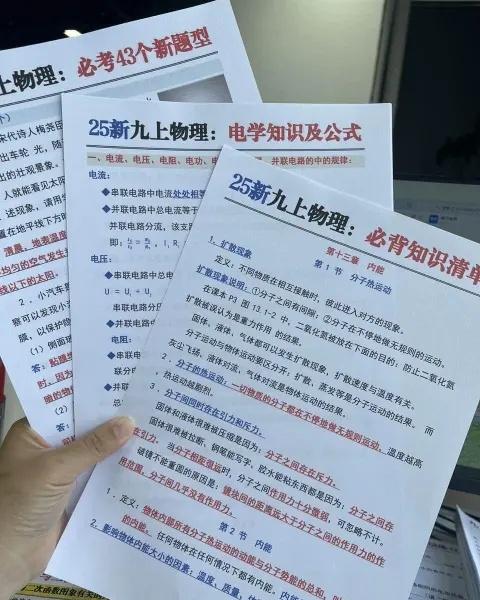 上物理：必考43个新题型
宋代诗人梅尧臣
出车轮 光，随
出的壮观景象。
人就能看见太阳
述现象，请用
置在地平线下方时
清晨，地表温度
均匀的空气发生
线以下的太阳。
2．小汽车
察可以发现小
膜，以保护
(1) 侧面玻
答：
时，因为
(2)
答：
25新九上物理：电学知识及公式
一、电流、电压、电阻、电功、电 并联电路的中的规律：
电流：
◆串联电路中电流处处相等
◆并联电路中总电流等于
并联电路分流，该支
即：
电压：
◆串联电路中总电
U = U₁ + U₂
串联电路分压
◆并联电路中
电阻：
◆串联电
联分电
◆并联
总
25新九上物理：必背知识清单
第十三章 内能
第 1 节 分子热运动
1．扩散现象
定义：不同物质在相互接触时，彼此进入对方的现象。
扩散现象说明：①分子之间有间隙；②分子在不停地做无规则的运动。
在课本 P3 图 13.1-2 中，二氧化氮被放在下面的目的：防止二氧化氮
扩散被误认为是重力作用 的结果。
固体、液体、气体都可以发生扩散现象，扩散速度与温度有关。
分子运动与物体运动要区分开：扩散、蒸发等是分子运动的结果， 而
灰尘飞扬、液体对流、气体对流是物体运动的结果。
2．分子的热运动：一切物质的分子都在不停地做无规则运动。温度越高
，热运动越剧烈。
3．分子间同时存在引力和斥力。
固体和液体很难被压缩是因为：分子之间存在斥力。
固体很难被拉断，钢笔能写字，胶水能粘东西都是因为：分子之间存
在引力。当分子相距很远时，分子之间作用力十分微弱，可忽略不计。
破镜不能重圆的原因是：镜块间的距离远大于分子之间的作用力的作
用范围，分子间几乎没有作用力。
第 2 节 内能
1．定义：物体内部所有分子热运动的动能与分子势能的总和，叫
的内能。任何物体在任何情况下都有内能。
2．影响物体内能大小的因素：温度、质量、
二次函数图象有关的